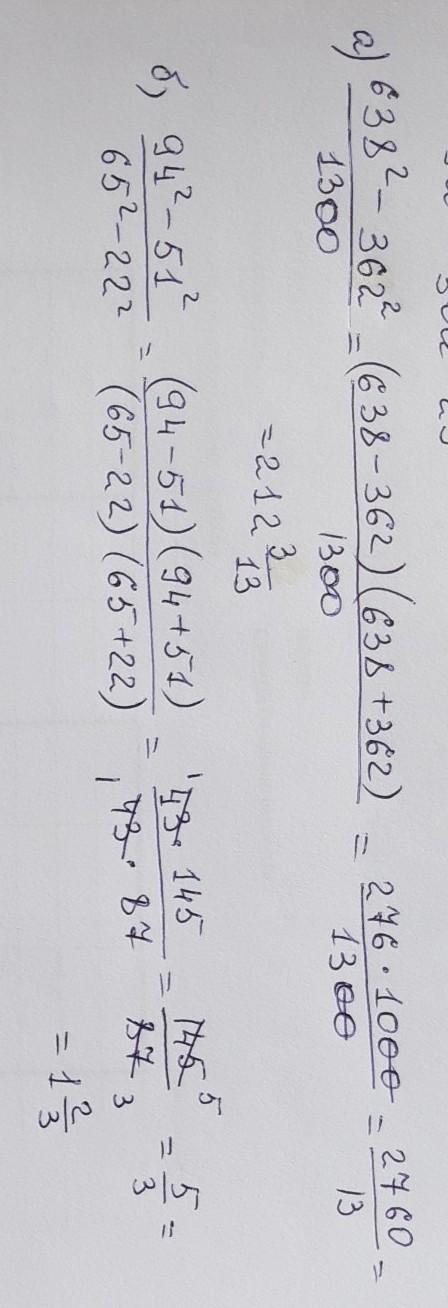 а) 638² - 362² / 1300 = (638-362)(638+362) / 1300 = 276·1000 / 1300 = 2760 / 13 =
= 212 3/13
б) 94² - 51² / 65² - 22² = (94-51)(94+51) / (65-22)(65+22) = 43·145 / 43·87 = 145 / 87 = 5 / 3 =
= 1 2/3